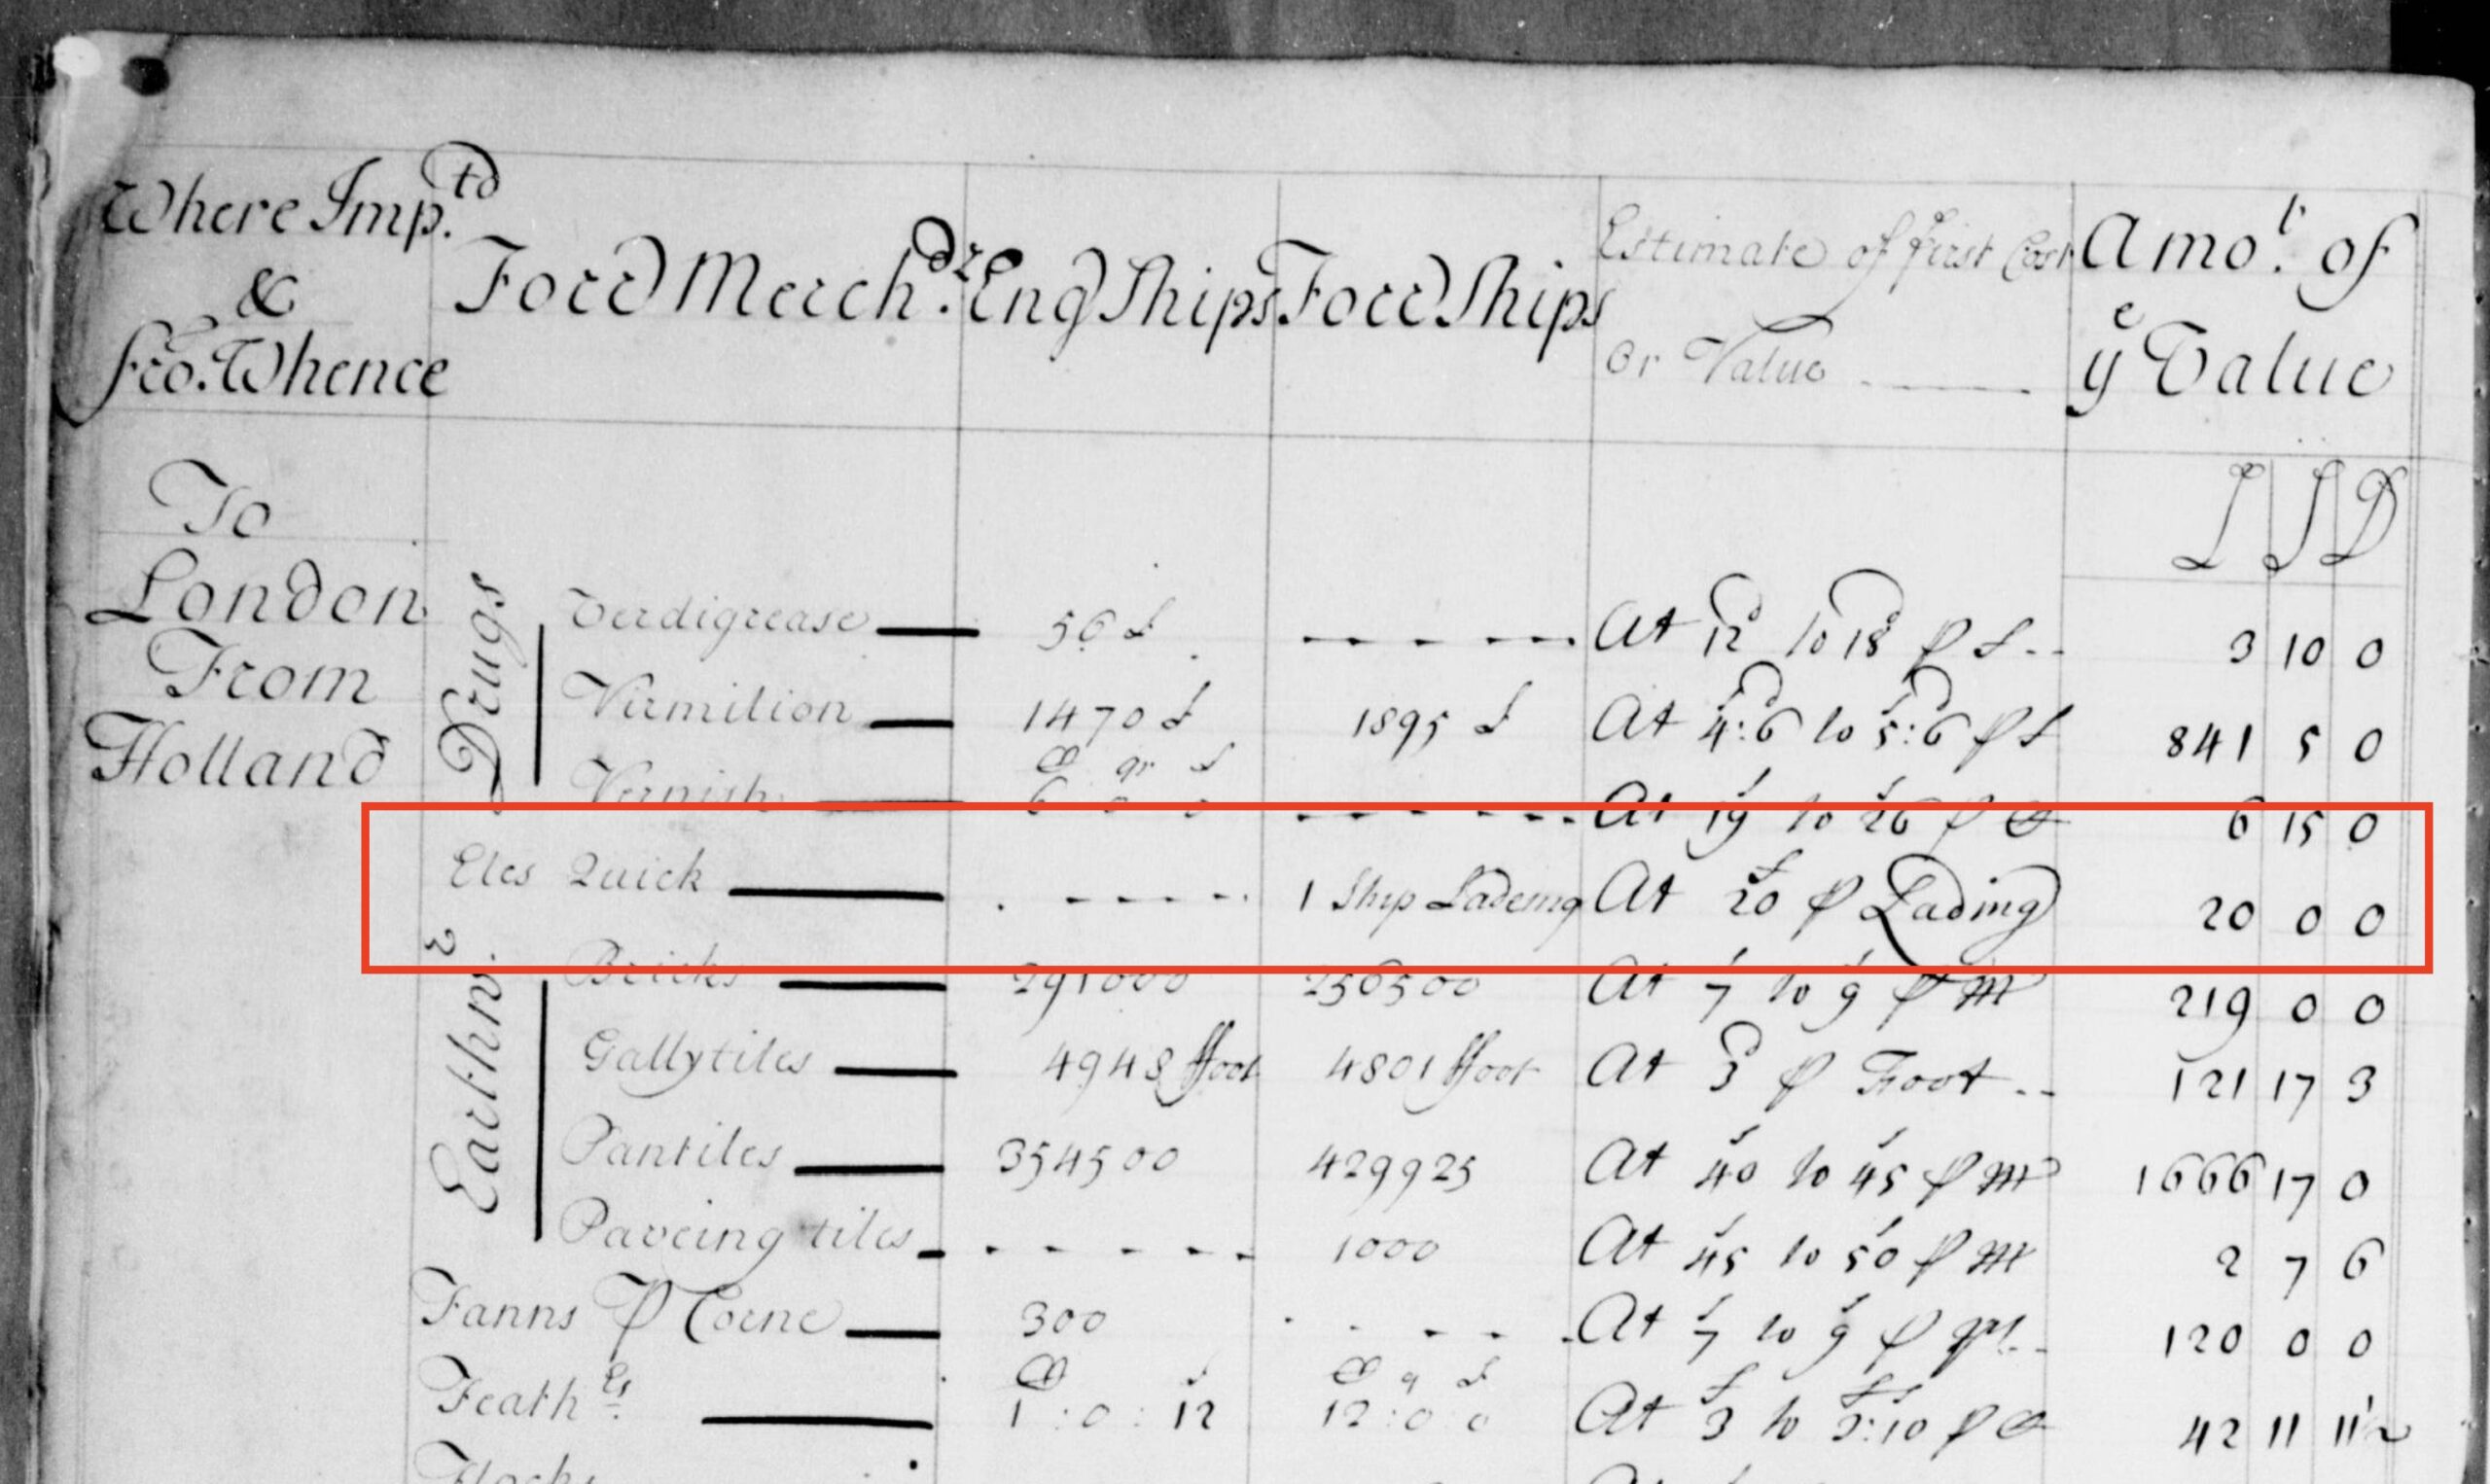 Where Imp.td & fro. Whence | Forr Merch.dz | Eng Ships | Forr Ships | Estimate of first Cost Or Value | Amo.t of ye Value
L S D
To London From Holland
Drugs
Verdigrease 56 l At 12d to 18d p l 3 10 0
Virmilion 1470 l 1895 l At 4s:6d to 5s:6d p l 841 5 0
C qr l
Vernish 6 0 0 At 19s to 26s p C 6 15 0
Eles Quick 1 Ship Ladeing At 20l p Lading 20 0 0
Earthnwr
Bricks 291000 256500 At 7s to 9s p M 219 0 0
Gallytiles 4948 ffoot 4801 ffoot At 3d p Foot 121 17 3
Pantiles 354500 429925 At 40s to 45s p M 1666 17 0
Paveing tiles 1000 At 45s to 50s p M 2 7 6
Fanns p Corne 300 At 7s to 9s p 120 0 0
C l C q l
Feathrs 1:0:12 12:0:0 At 3l to 3l:10s p C 42 11 11½
Flocks